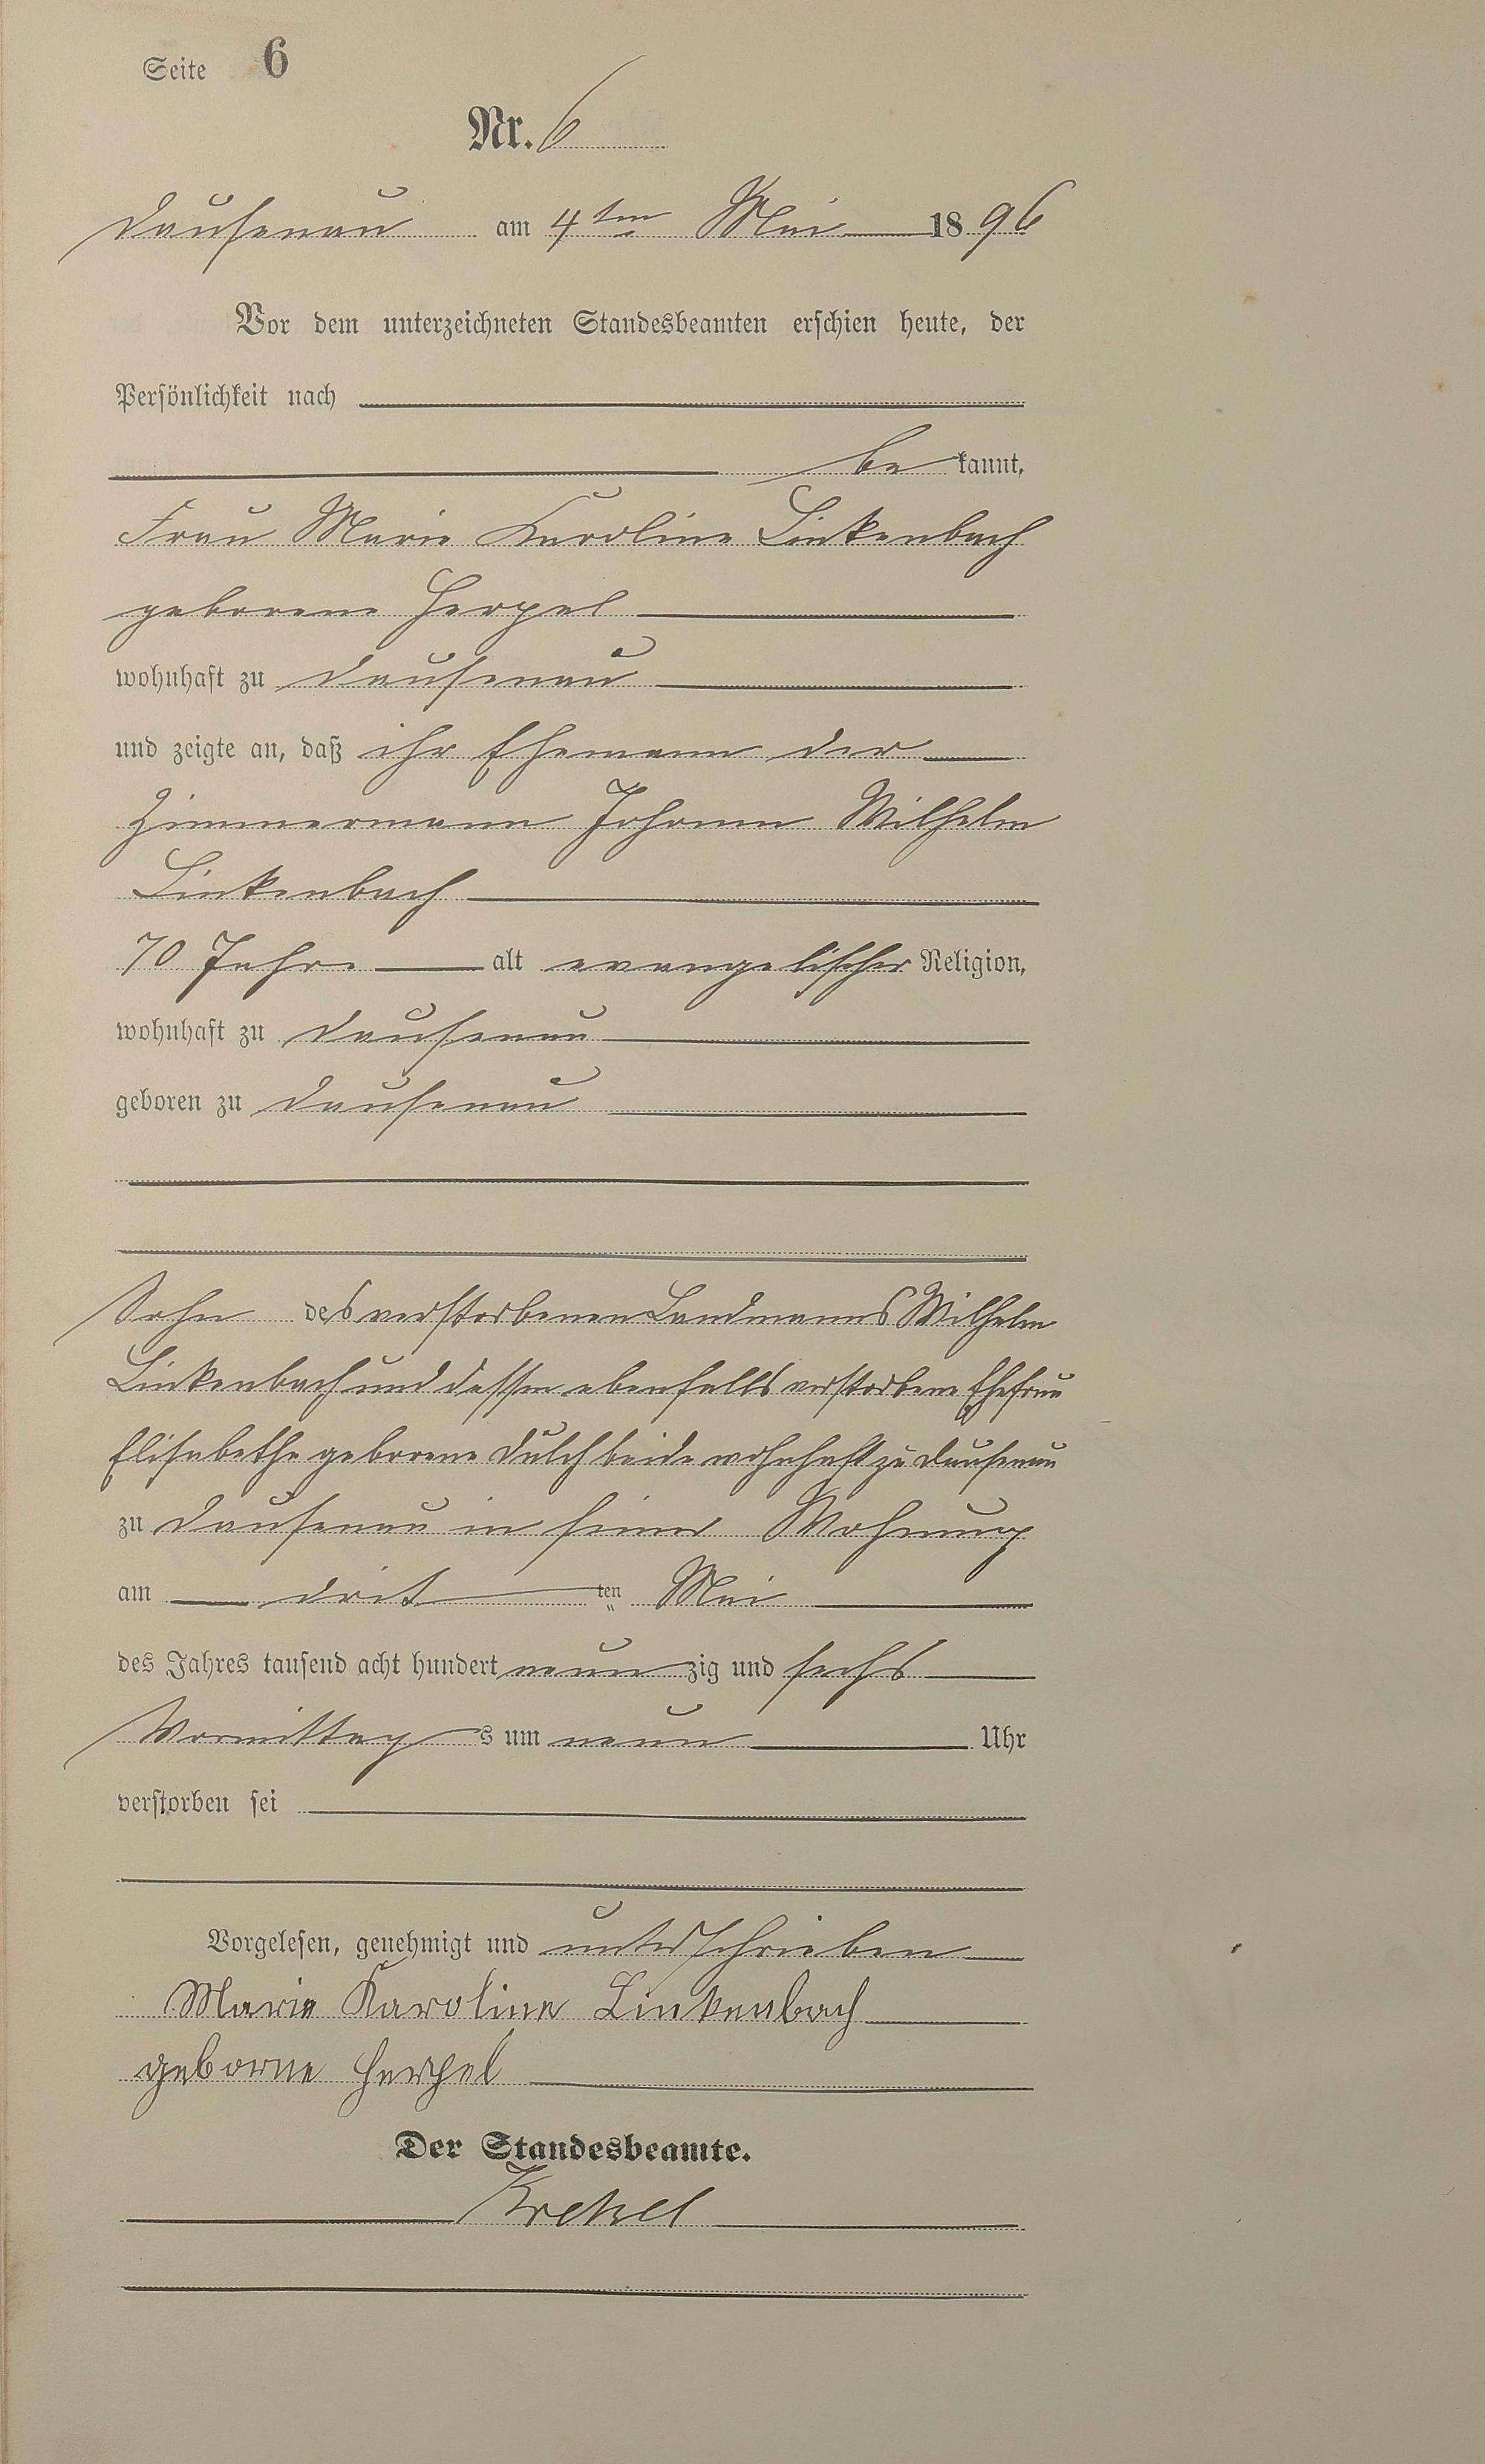 Seite 6
Nr. 6
Dausenau am 4ten Mai 1896
Vor dem unterzeichneten Standesbeamten erschien heute, der
Persönlichkeit nach
be kannt,
Frau Marie Karoline Linkenbach
geborene Herpel
wohnhaft zu Dausenau
und zeigte an, daß ihr Ehemann der
Zimmermann Johann Wilhelm
Linkenbach
70 Jahre alt evangelischer Religion,
wohnhaft zu Dausenau
geboren zu Dausenau
Sohn des verstorbenen Landmanns Wilhelm
Linkenbach und dessen ebenfalls verstorbene Ehefrau
Elisabethe geborene Dulch beide wohnhaft zu Dausenau
zu Dausenau in seiner Wohnung
am drit ten Mai
des Jahres tausend acht hundert neun zig und sechs
Vormittag s um neun Uhr
verstorben sei
Vorgelesen, genehmigt und unterschrieben
Marie Karoline Linkenbach
geborne Herpel
Der Standesbeamte.